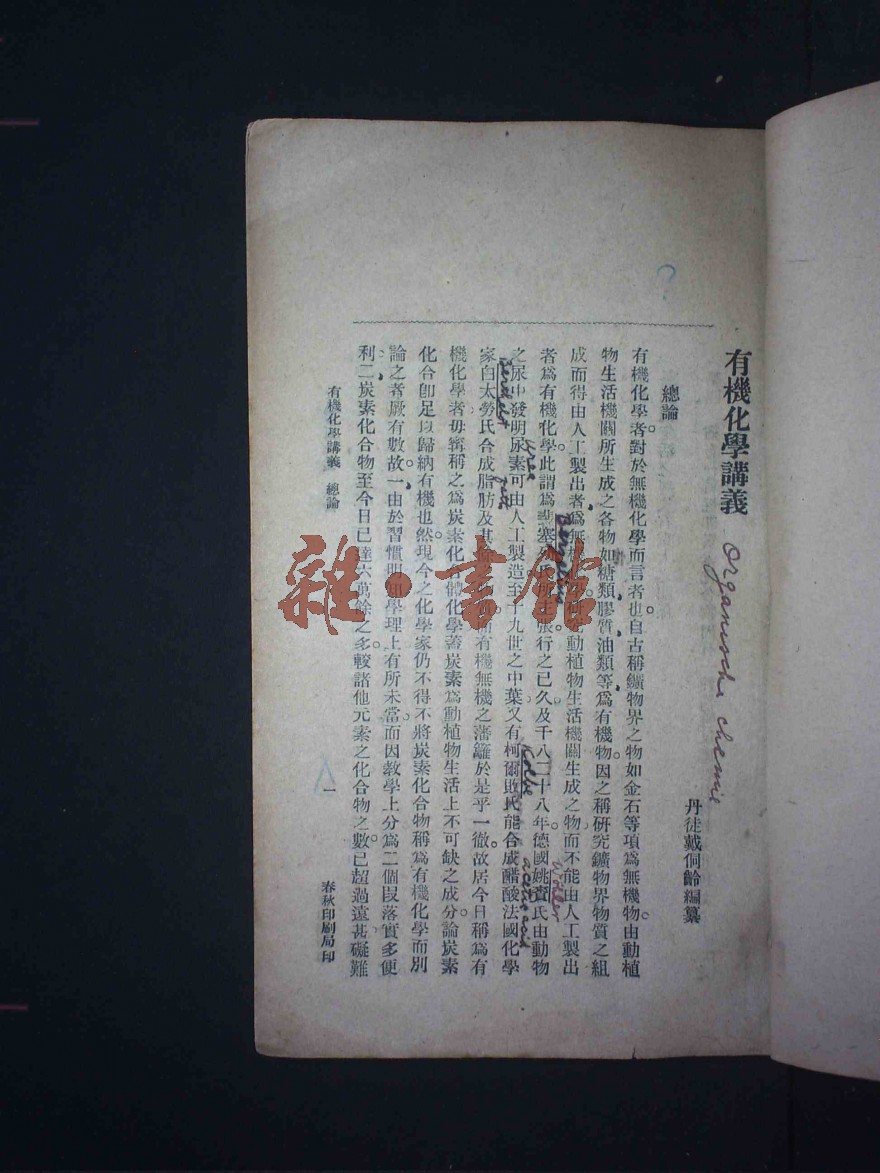 有機化學講義
organische chemie
丹徒戴侗齡編纂
總論
有機化學者對於無機化學而言者也。自古稱鑛物界之物如金石等項爲無機物。由動植
物生活機關所生成之各物如糖類、膠質、油類等、爲有機物。因之稱研究鑛物界物質之組
成而得由人工製出者、爲無機 動植物生活機關生成之物而不能由人工製出
者爲有機化學。此謂爲 塞 張行之已久。及千八百二十八年。德國姚賚氏由動物
之尿中發明尿素可由人工製造。至十九世之中葉。又有柯爾敗氏能合成醋酸。法國化學
家白太勞氏合成脂肪及其 有機無機之藩籬於是乎一徹。故居今日稱爲有
機化學者。毋寧稱之爲炭素化合體化學。蓋炭素爲動植物生活上不可缺之成分。論炭素
化合卽足以歸納有機也。然現今之化學家仍不得不將炭素化合物稱爲有機化學而別
論之者、厥有數故。一由於習慣。明知學理上有所未當。而因教學上分爲二個段落。實多便
利。二炭素化合物至今日已達六萬餘之多。較諸他元素之化合物之數。已超過遠甚。礙難
Kolbe
acetic acid
有機化學講義 總論
一
春秋印刷局印
雜·書館